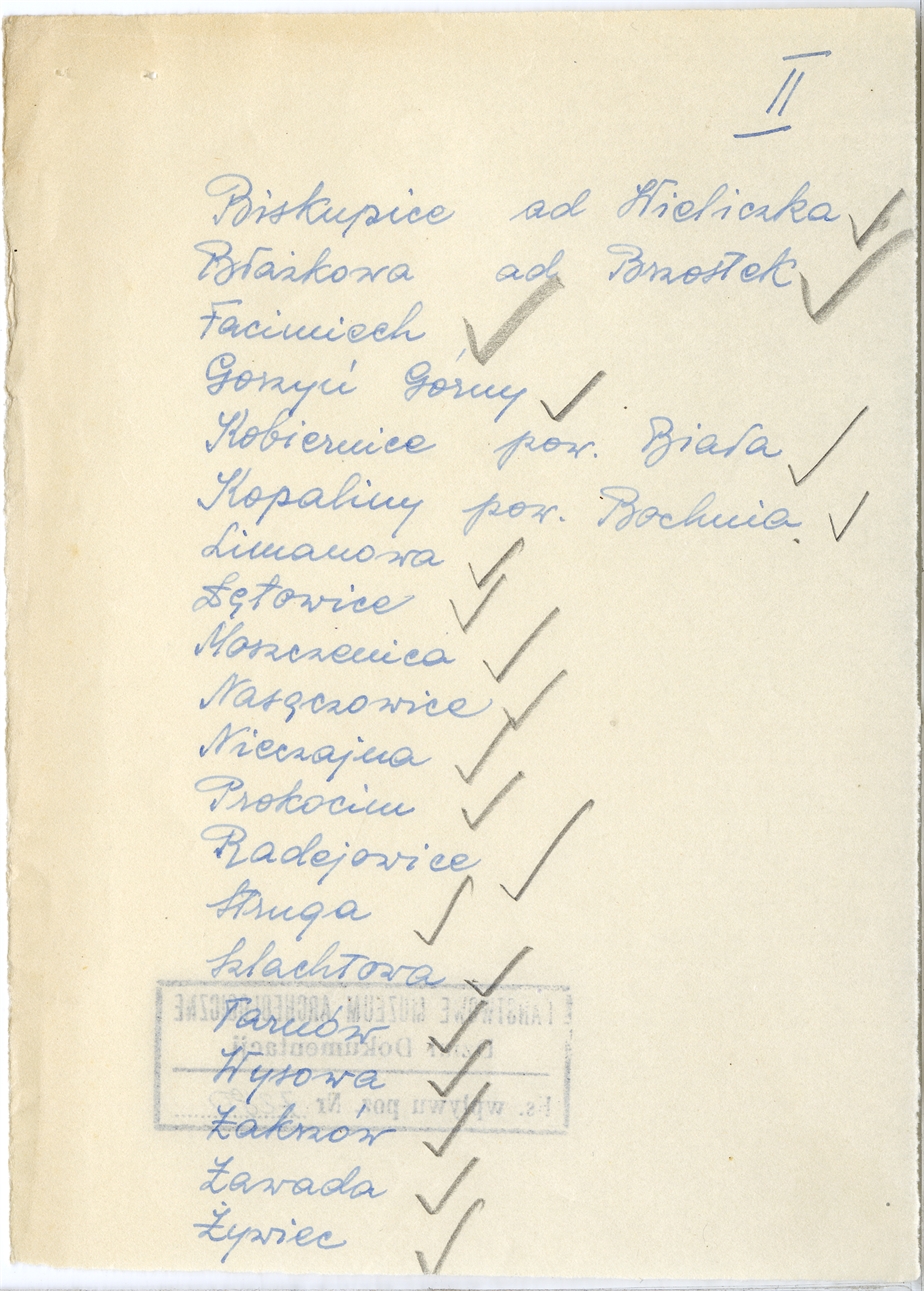 II
Biskupice ad Wieliczka
Błażkowa ad Brzostek
Facimiech
Gorzyń Górny
Kobiernice pow. Biała
Kopaliny pow. Bochnia.
Limanowa
Łętowice
Moszczenica
Nasączowice
Nieczajna
Prokocim
Radejowice
Struga
Szlachtowa
Tarnów
Wysowa
Zakrzów
Zawada
Żywiec
PAŃSTWOWE MUZEUM ARCHEOLOGICZNE
Dział Dokumentacji
Ks. wpływu poz. Nr